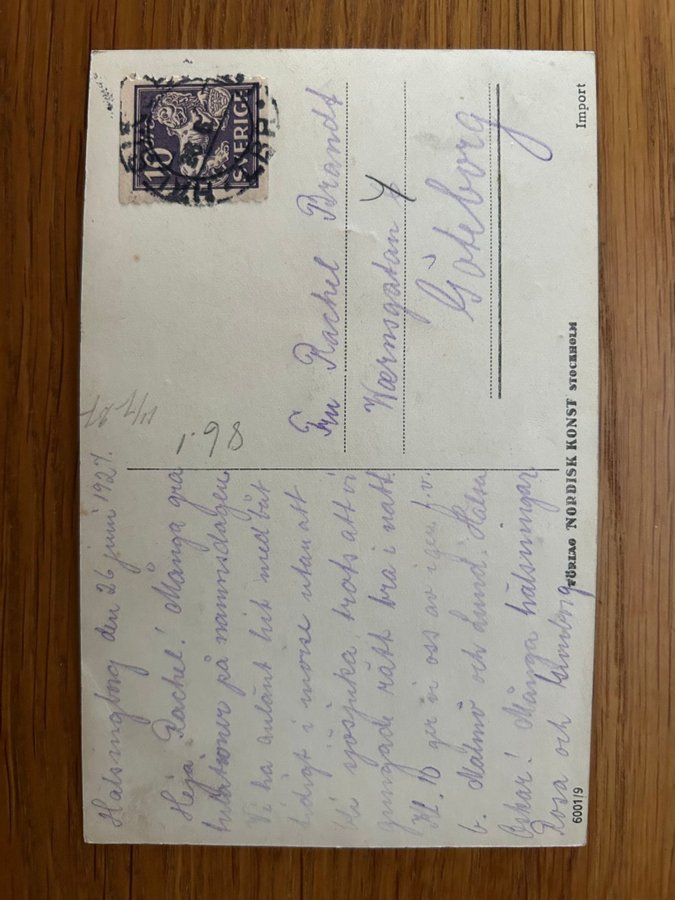 Hälsingborg den 26 juni 1927.
Heja Rachel! Många gra
tulationer på namnsdagen
Vi ha anlänt hit med båt
tidigt i morse utan att
bli sjösjuka trots att vi
gungade rätt bra i natt
Kl. 10 ger vi oss av igen f.v.
b. Malmö och Lund. Hälsa
Oskar! Många hälsningar
Rosa och
6001/9
1.98
10
SVERIGE
Fru Rachel Brandt
Værnsgatan 4
Göteborg
FÖRLAG NORDISK KONST STOCKHOLM
Import